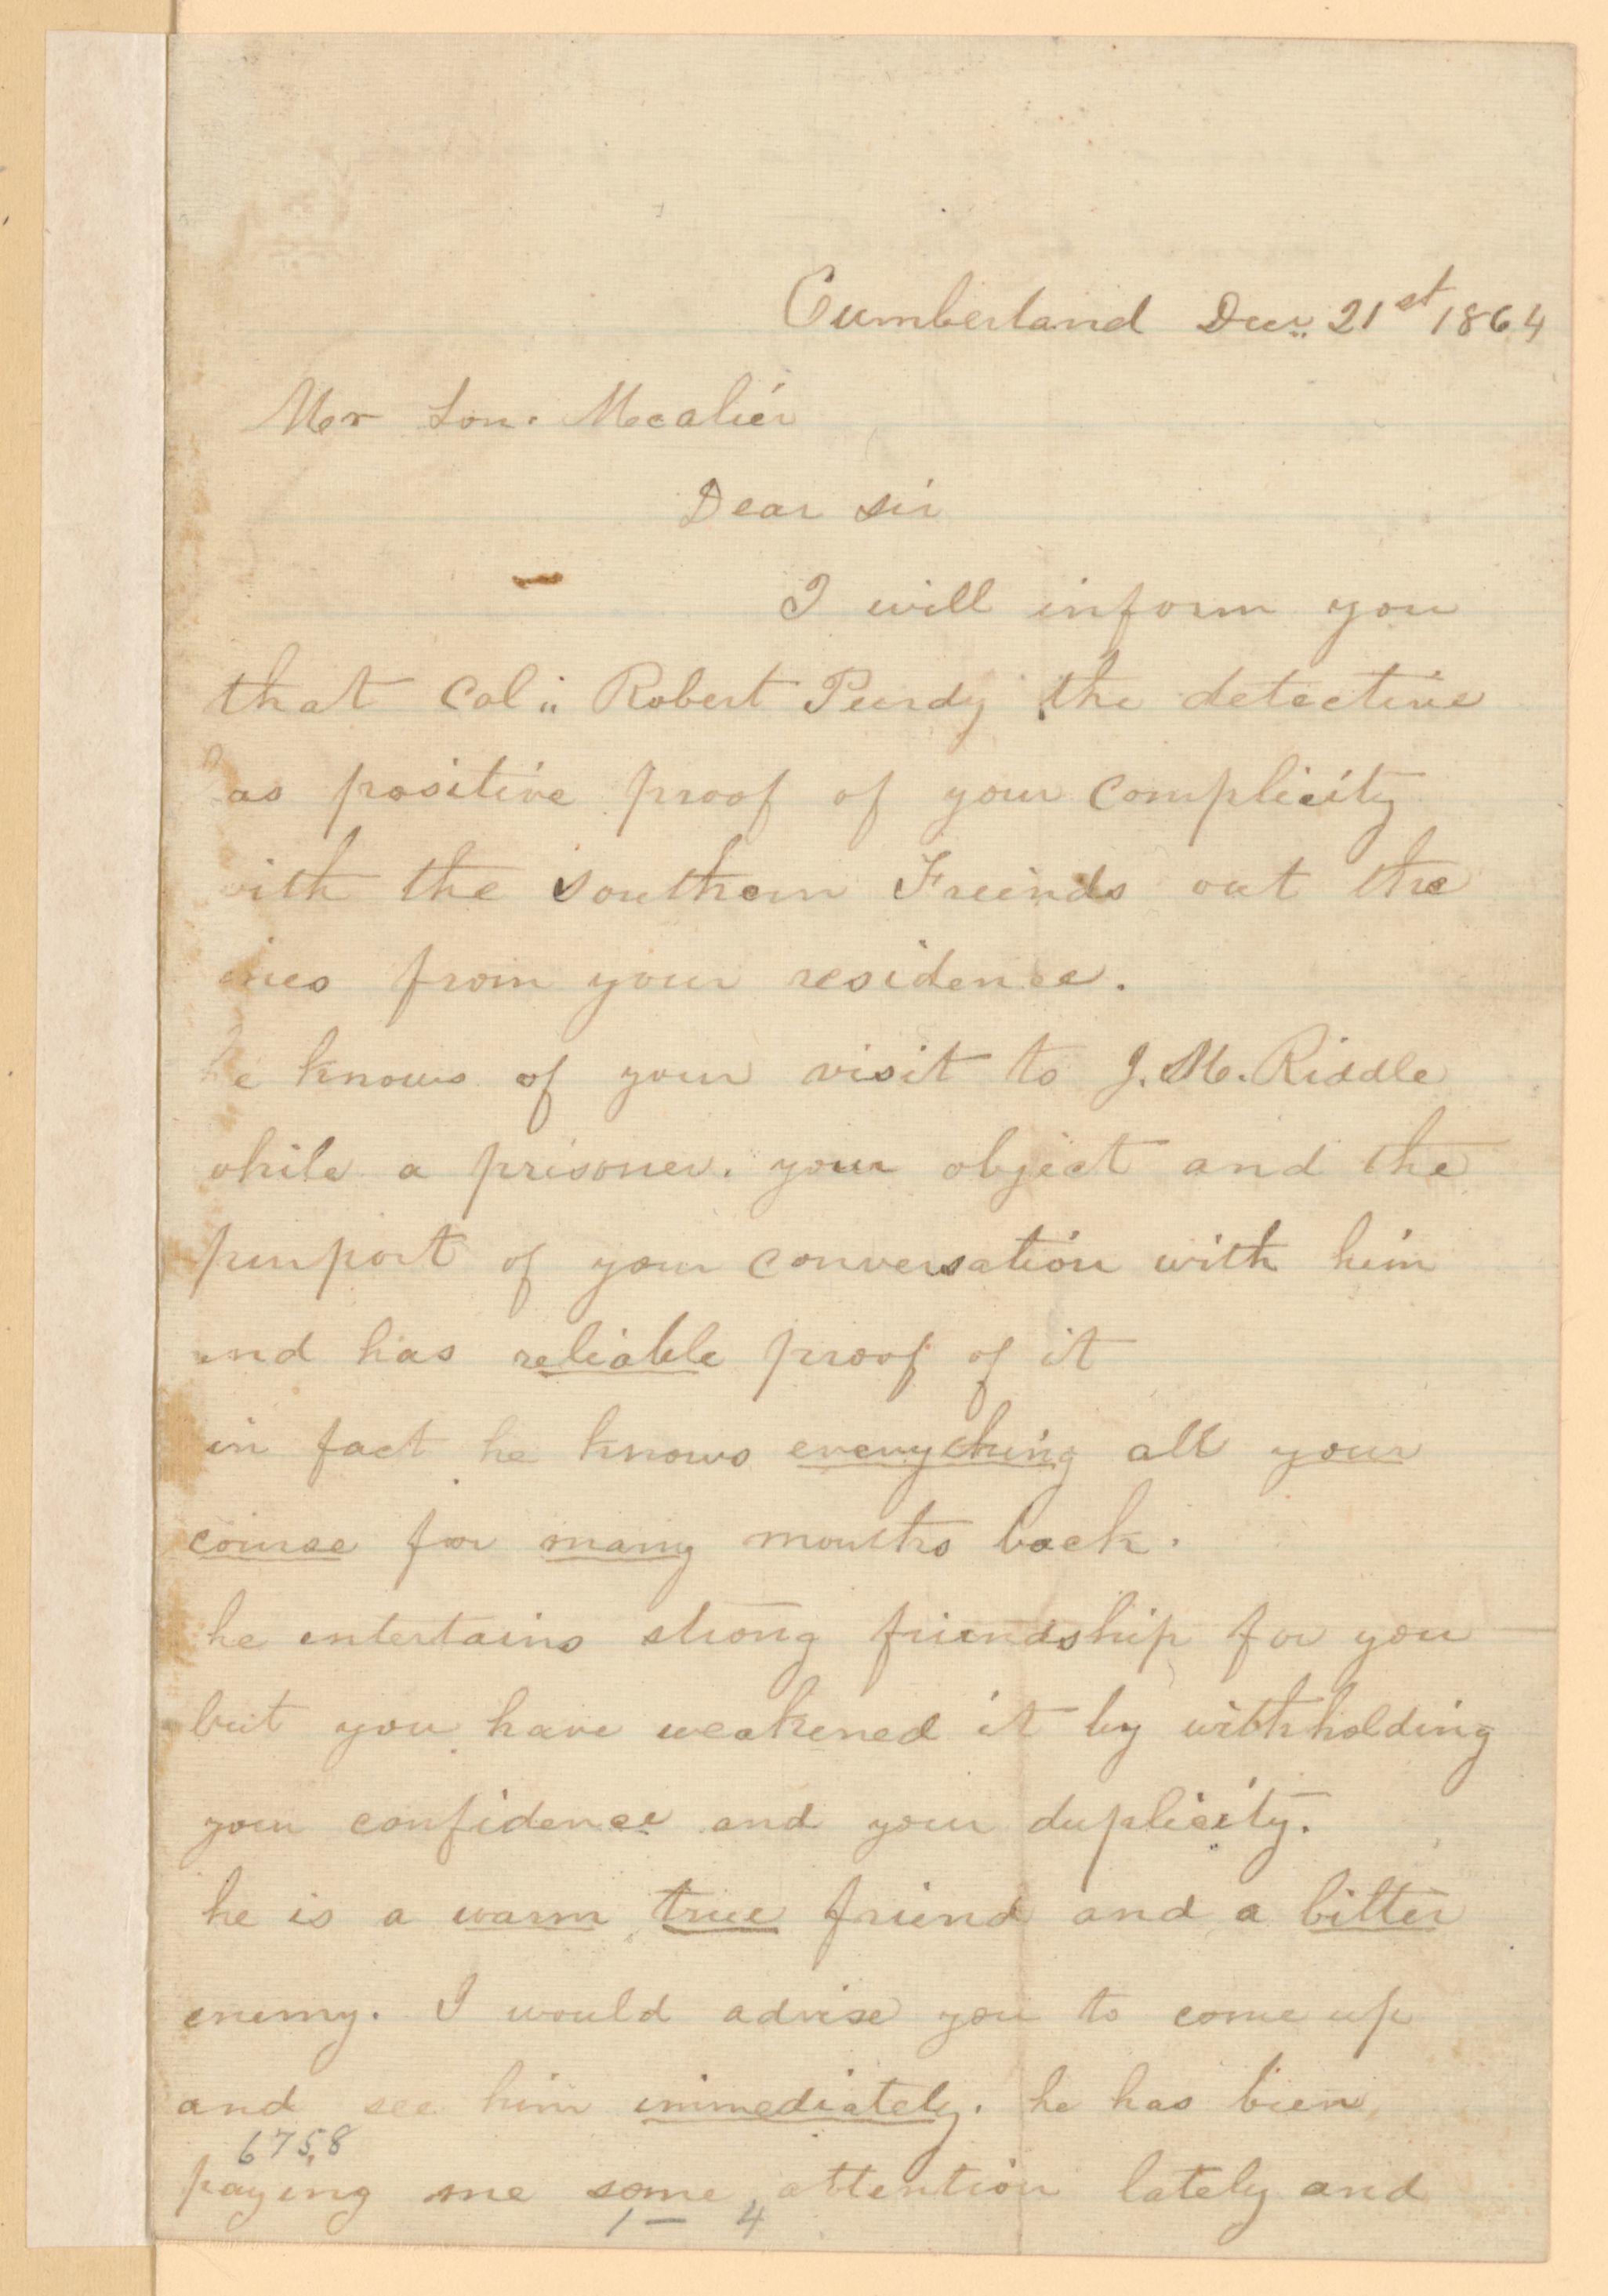 Cumberland Dec 21st 1864
Mr Lon. Mcalier
Dear sir
I will inform you
that Col. Robert Purdy the detective
has positive proof of your complicity
with the southern Freinds out the
from your residence.
he knows of your visit to J. M. Riddle
while a prisoner. your object and the
purport of your conversation with him
and has reliable proof of it
in fact he knows everything all your
course for many months back.
he entertains strong friendship for you
but you have weakened it by withholding
your confidence and your duplicity.
he is a warm true friend and a bitter
enemy. I would advise you to come up
and see him immediately. he has bien
6758
paying me some attention lately and
1 — 4